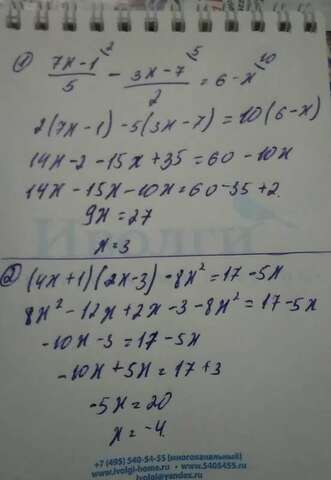 1) (7x-1)/5 ² - (3x-7)/2 ⁵ = 6-x ¹⁰
2(7x-1)-5(3x-7)=10(6-x)
14x-2-15x+35=60-10x
14x-15x-10x=60-35+2.
9x=27
x=3
2) (4x+1)(2x-3)-8x²=17-5x
8x²-12x+2x-3-8x²=17-5x
-10x-3=17-5x
-10x+5x=17+3
-5x=20
x=-4.
Иволги
+7 (495) 540-54-55 (многоканальный)
www.ivolgi-home.ru • www.5405455.ru
ivolgi@yandex.ru